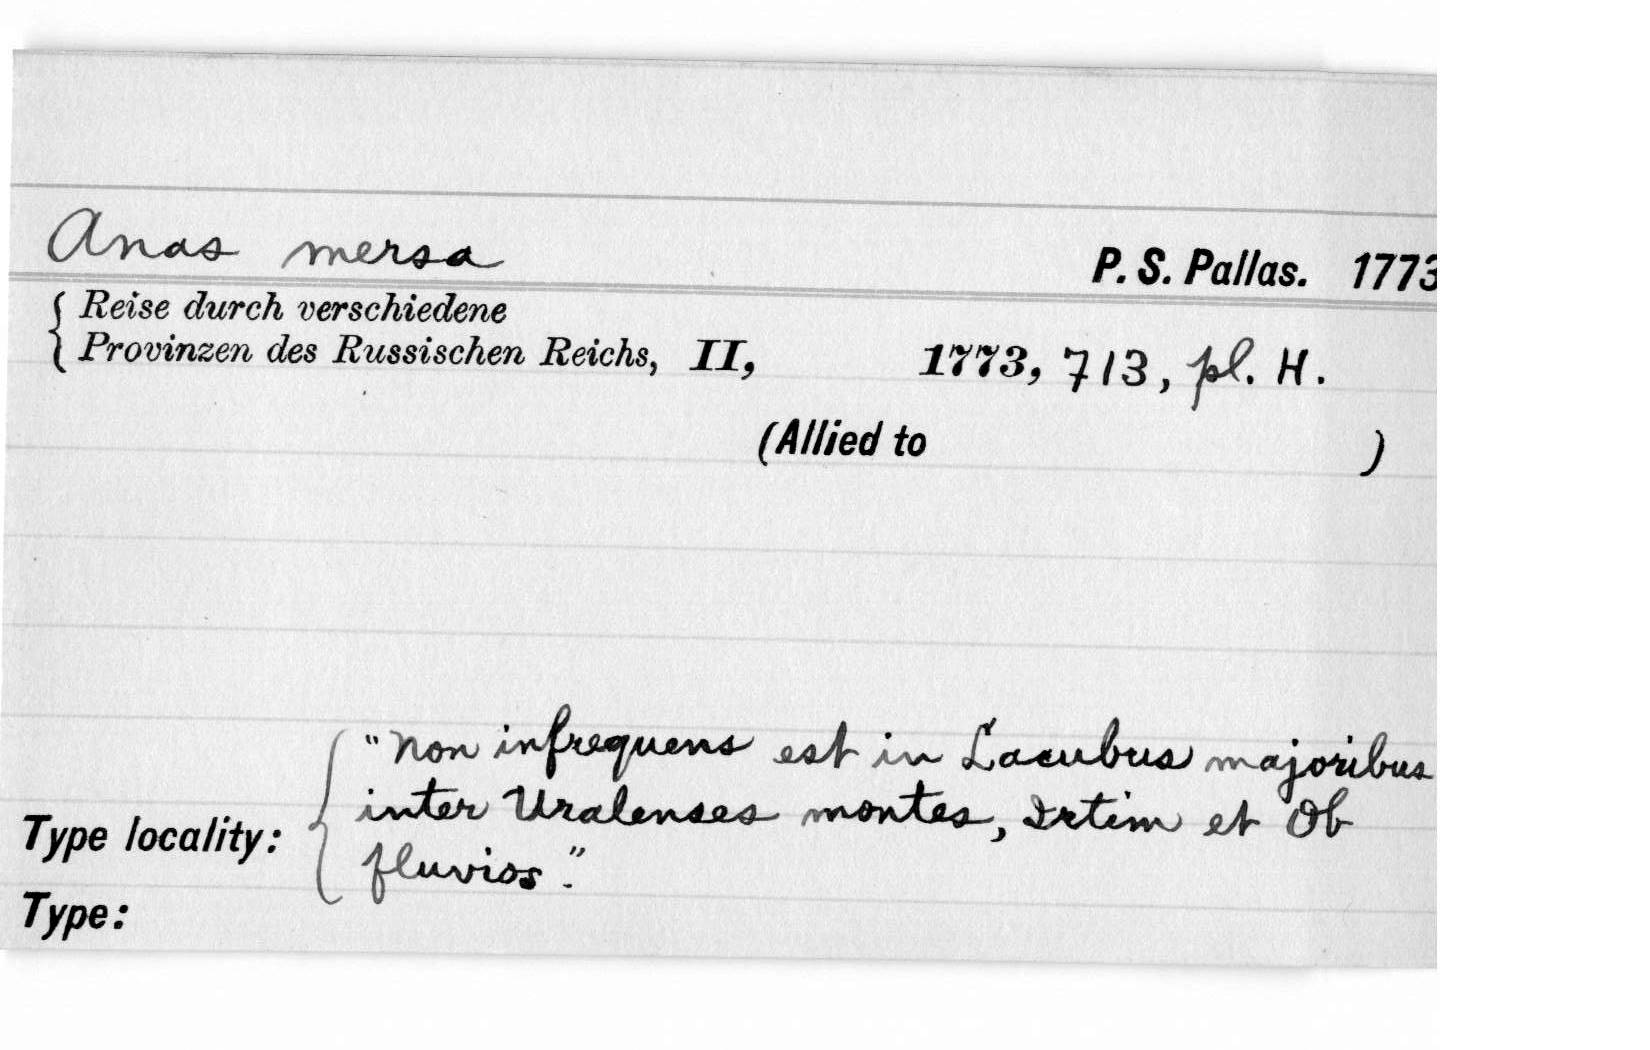 Anas mersa P. S. Pallas. 1773
Reise durch verschiedene
Provinzen des Russischen Reichs, II, 1773, 713, pl. H.
(Allied to )
"Non infrequens est in Lacubus majoribus
inter Uralenses montes, Irtim et Ob
Type locality: fluvios."
Type: